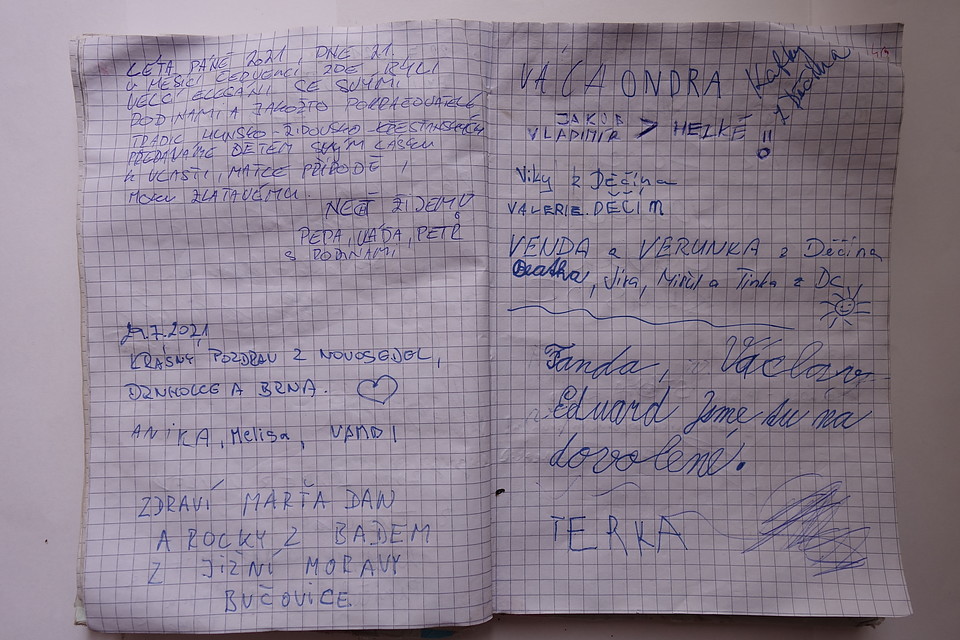 LÉTA PÁNĚ 2021, DNE 21.
V MĚSÍCI ČERVENCI ZDE BYLI
VELCÍ ELEGÁNI SE SVÝMI
RODINAMI A JAKOŽTO POKRAČOVATELÉ
TRADIC HUNSKO-ŽIDOVSKO-KŘESŤANSKÝCH
PŘEDÁVÁME DĚTEM SVÝM LÁSKU
K VLASTI, MATCE PŘÍRODĚ I
MOKU ZLATAVÉMU.
NEŽ ŽIJEME
PEPA, VÁĎA, PETR
S RODINAMI
21.7.2021
KRÁSNÝ POZDRAV Z NOVOSEDEL,
DRNHOLCE A BRNA.
ANIKA, Melisa, VAMDI
ZDRAVÍ MARŤA DAN
A ROCKY Z BADEM
Z JIŽNÍ MORAVY
BUČOVICE
VÁCA ONDRA
JAKUB
VLADIMÍR > HEZKÉ !!
Viky z Děčína
VALERIE. DĚČÍN
VENDA a VERUNKA z Děčína
Beatka, Jirka, Mirčil a Tinka z DC
Fanda, Václav
Eduard Jsme tu na
dovolené.
TERKA